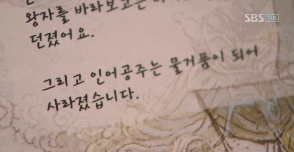 왕자를 바라보고는
던졌어요.
그리고 인어공주는 물거품이 되어
사라졌습니다.
SBS